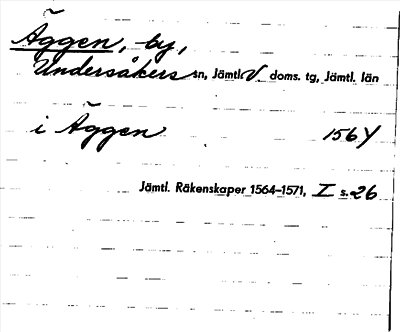 Äggen, by,
Undersåkers sn, Jämtl. V doms. tg, Jämtl. län
i Äggen 1564
Jämtl. Räkenskaper 1564-1571, I s. 26